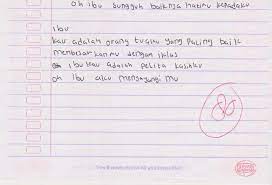 oh ibu sungguh baiknya hatimu kepadaku
ibu
kau adalah orang tuaku yang paling baik
membesarkanmu dengan iklas
ibu kau adalah pelita kasihku
oh ibu aku menyayangi mu